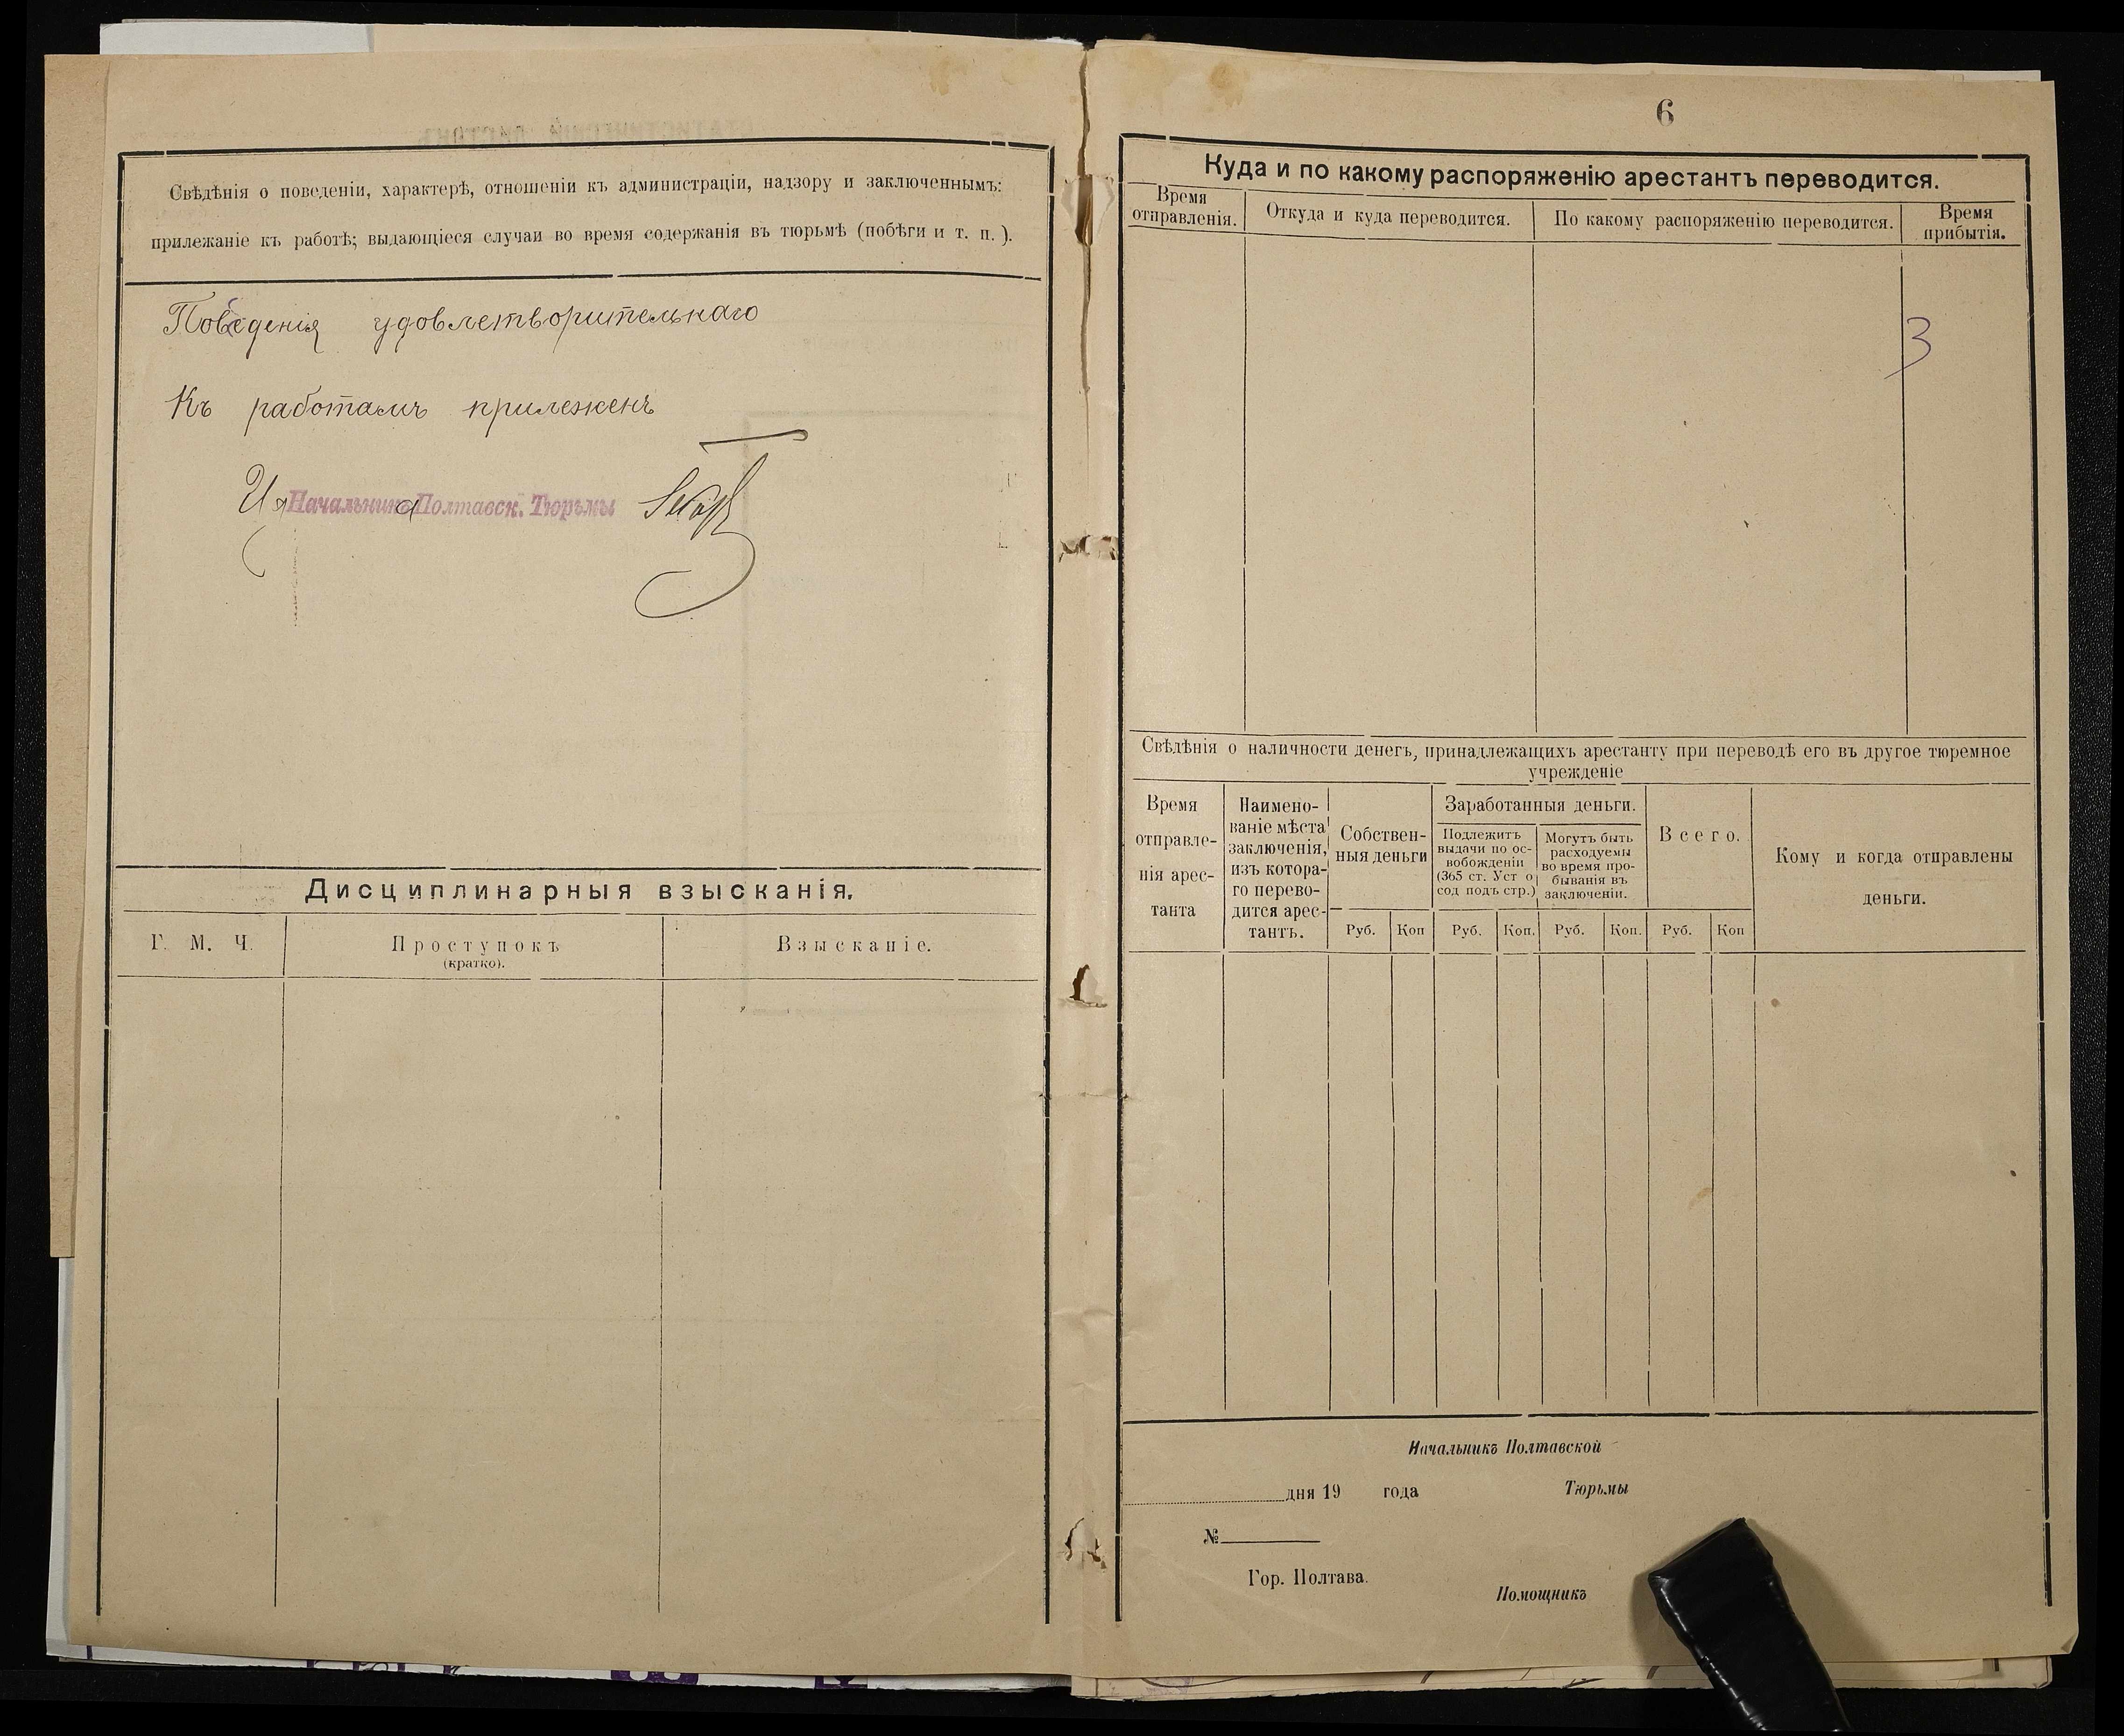 Свѣдѣнія о поведеніи, характерѣ, отношеніи къ администраціи, надзору и заключеннымъ:
прилежаніе къ работѣ; выдающіеся случаи во время содержанія въ тюрьмѣ (побѣги и т. п. ).
Поведенія удовлетворительнаго
Къ работамъ прилеженъ
Начальникъ Полтавск. Тюрьмы
Дисциплинарныя взысканія.
Г. М. Ч.
Проступокъ
(кратко).
Взысканіе.
6
Куда и по какому распоряженію арестантъ переводится.
Время
отправленія.
Откуда и куда переводится.
По какому распоряженію переводится.
Время
прибытія.
3
Свѣдѣнія о наличности денегъ, принадлежащихъ арестанту при переводѣ его въ другое тюремное
учрежденіе
Время
отправле-
нія арес-
танта
Наимено-
ваніе мѣста
заключенія,
изъ котора-
го перево-
дится арес-
тантъ.
Собствен-
ныя деньги
Заработанныя деньги.
Подлежитъ
выдачи по ос-
вобожденіи
(365 ст. Уст о
сод подъ стр.)
Могутъ быть
расходуемы
во время про-
быванія въ
заключеніи.
Всего.
Кому и когда отправлены
деньги.
Руб. Коп Руб. Коп. Руб. Коп. Руб. Коп
Начальникъ Полтавской
дня 19 года Тюрьмы
№
Гор. Полтава.
Помощникъ